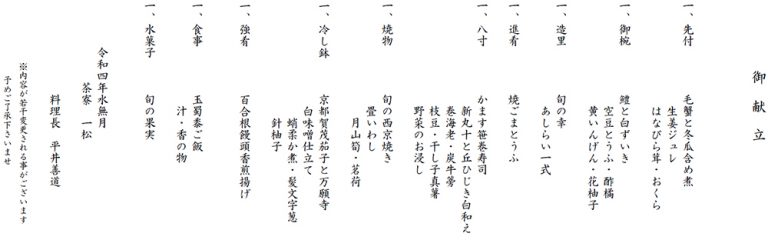 御献立
一、先付
毛蟹と冬瓜含め煮
生姜ジュレ
はなびら茸・おくら
一、御椀
鱧と白ずいき
空豆とうふ・酢橘
黄いんげん・花柚子
一、造里
旬の幸
あしらい一式
一、進肴
焼ごまとうふ
一、八寸
かます笹巻寿司
新丸十と丘ひじき白和え
巻海老・炭牛蒡
枝豆・干し子真薯
野菜のお浸し
一、焼物
旬の西京焼き
畳いわし
月山筍・茗荷
一、冷し鉢
京都賀茂茄子と万願寺
白味噌仕立て
蛸柔か煮・髪文字葱
針柚子
一、強肴
百合根饅頭香煎揚げ
一、食事
玉蜀黍ご飯
汁・香の物
一、水菓子
旬の果実
令和四年水無月
茶寮 一松
料理長 平井善道
※内容が若干変更される事がございます
予めご了承下さいませ